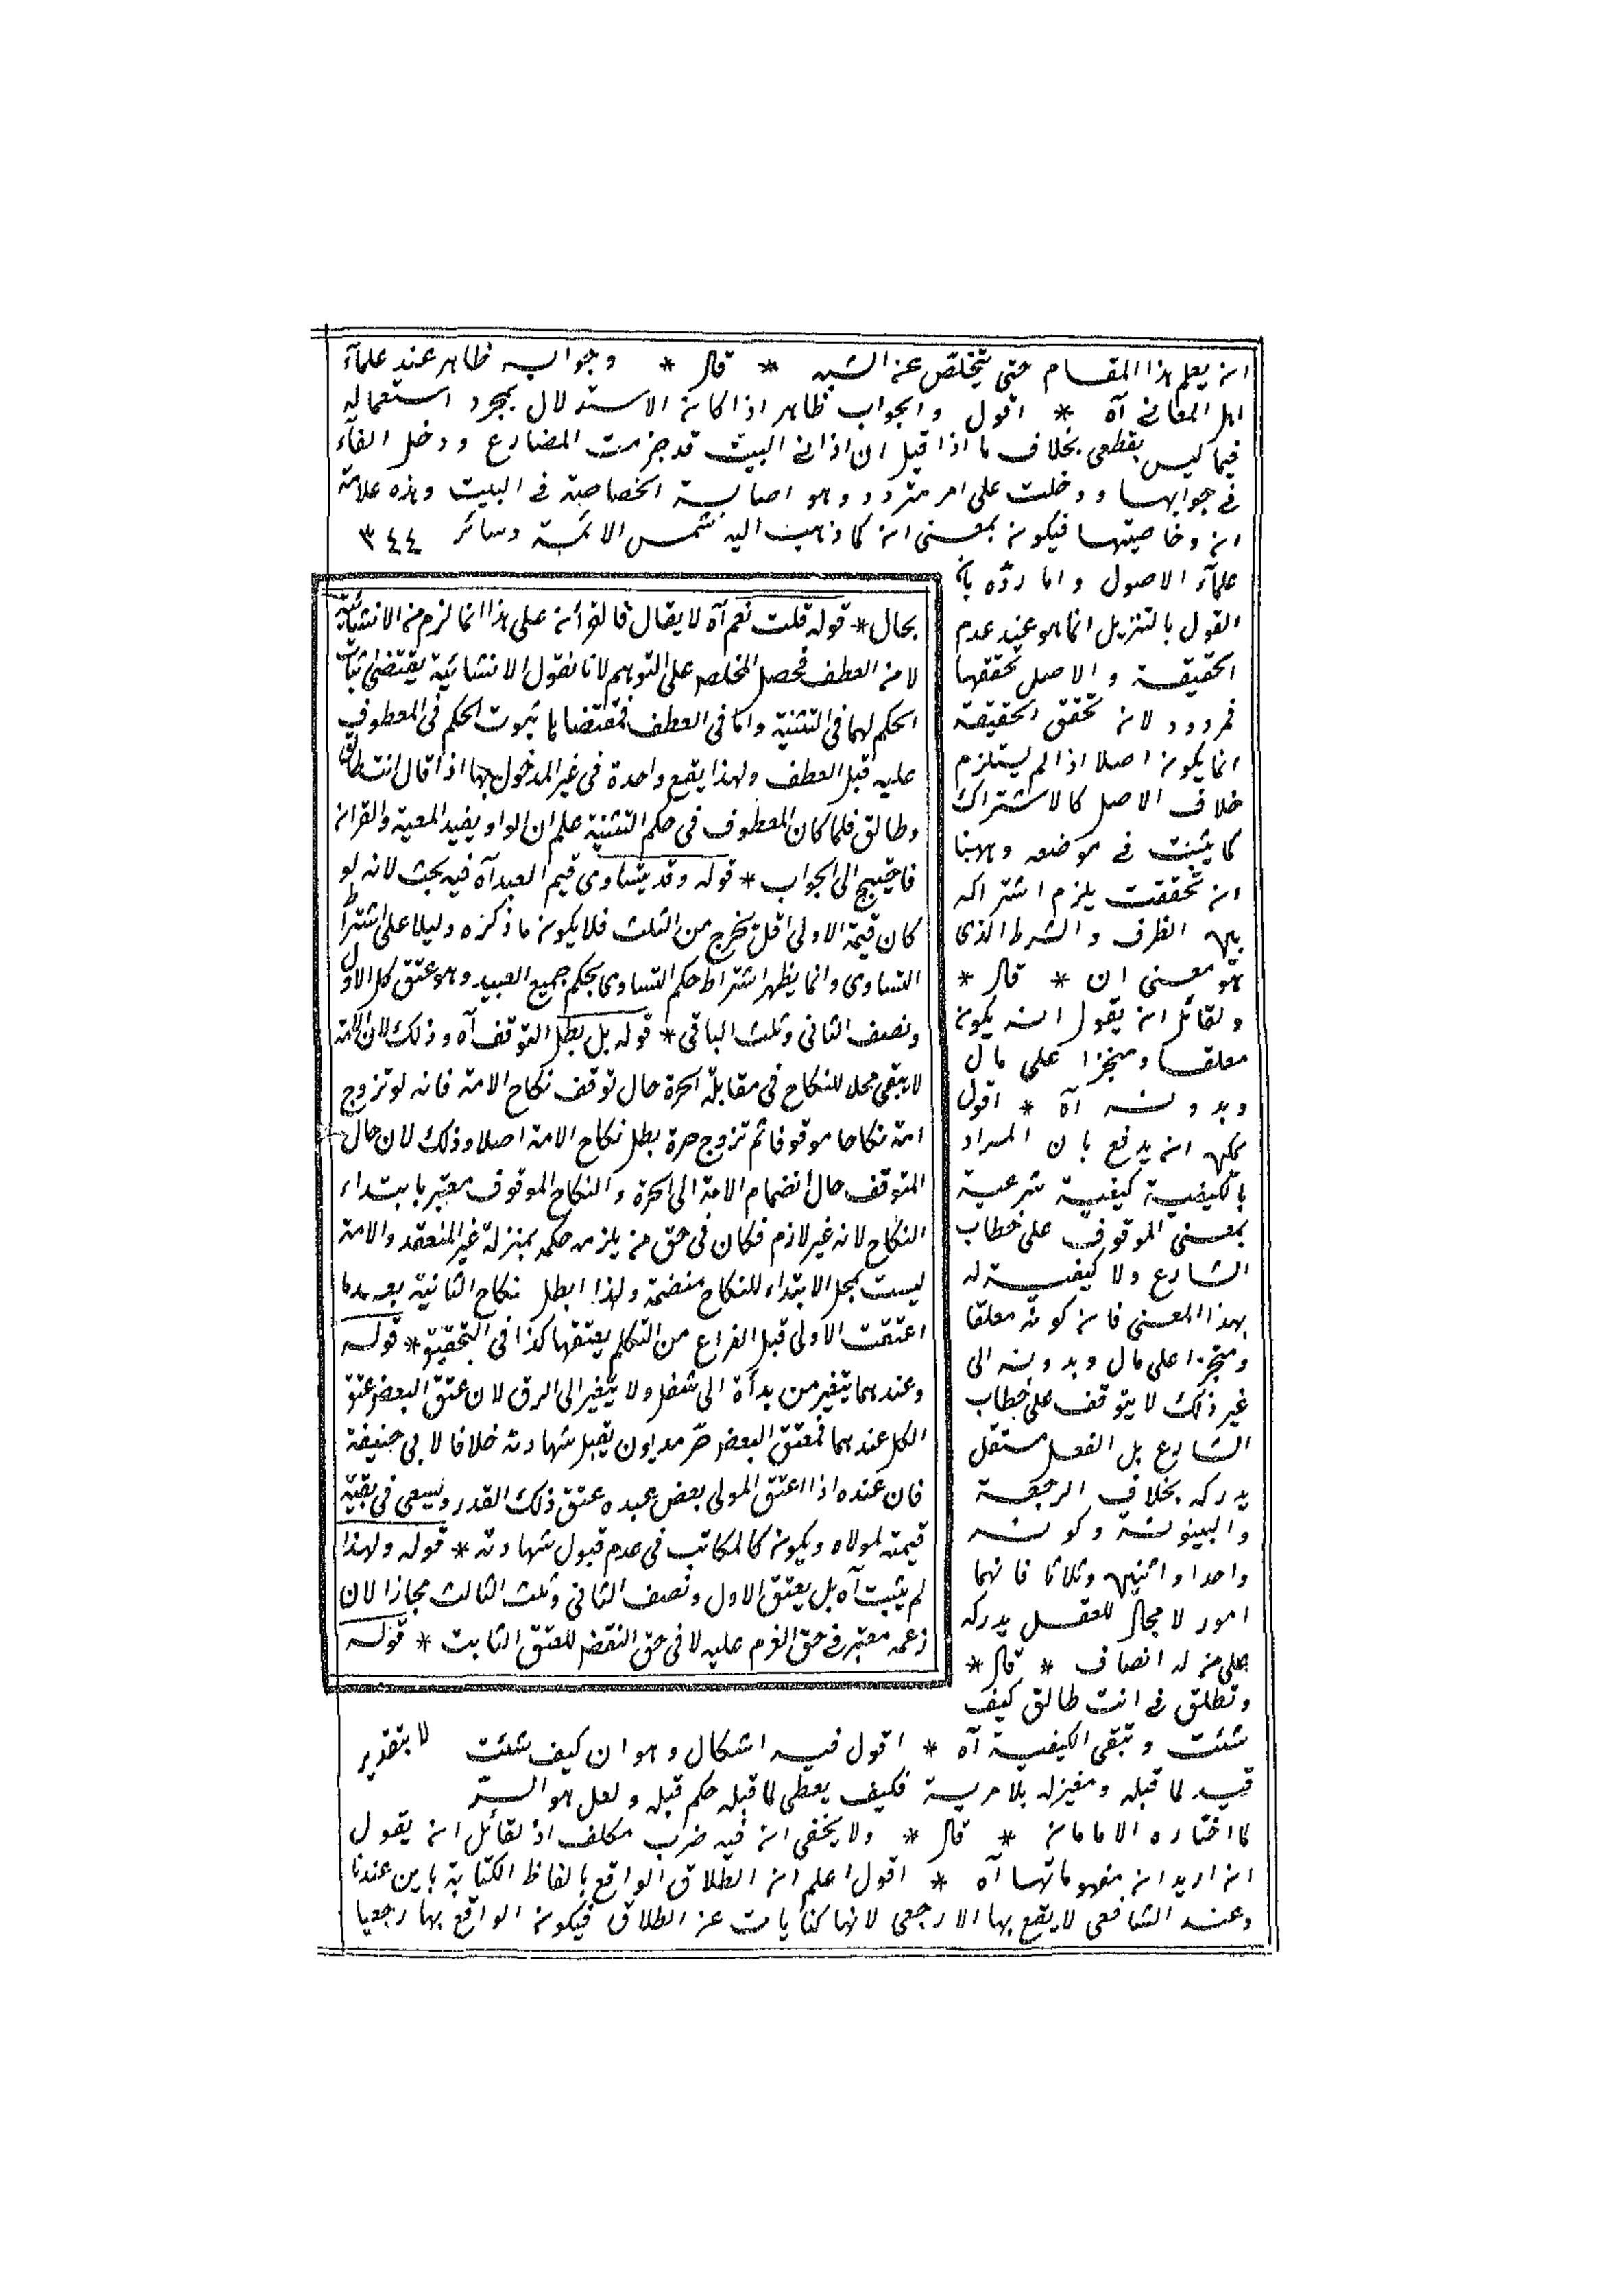 ان يعلم هذا المقام حتى يتخلص عن الشبه * قال * وجوابه ظاهر عند علمآء
اهل المعاني آه * اقول والجواب ظاهر اذا كان الاستدلال بمجرد استعماله
فيما ليس بقطعى بخلاف ما اذا قيل ان اذا فى البيت قد جزمت المضارع ودخل الفآء
فى جوابها ودخلت على امر متردد وهو اصابة الخصاصة فى البيت وهذه علامة
ان وخاصيتها فيكون بمعنى ان كما ذهب اليه شمس الائمة وسائر ٣٤٤
علمآء الاصول واما ردّه بان
القول بالتنزيل انما هو عند عدم
الحقيقة والاصل تحققها
فمردود لان تحقق الحقيقة
انما يكون اصلا اذا لم يستلزم
خلاف الاصل كالاشتراك
كما يثبت فى موضعه وههنا
ان تحققت يلزم اشتراكه
بين الظرف والشرط الذى
هو معنى ان * قال *
ولقائل ان يقول انه يكون
معلقا ومنجزا على مال
وبدونه آه * اقول
يمكن ان يدفع بان المراد
بالكيفية كيفية شرعية
بمعنى الموقوف على خطاب
الشارع ولا كيفية له
بهذا المعنى فان كونه معلقا
ومنجزا على مال وبدونه الى
غير ذلك لا يتوقف على خطاب
الشارع بل الفعل مستقل
يدركه بخلاف الرجعة
والبينونة وكونه
واحدا واثنين وثلاثا فانهما
امور لا مجال للعقل يدركه
على من له انصاف * قال *
وتطلق فى انت طالق كيف
شئت وتبقى الكيفية آه * اقول فيه اشكال وهو ان كيف شئت لا بتقدير
قيد لما قبله ومغيزله بلا مرية فكيف يعطى لما قبله حكم قبله ولعل هو السرّ
لما اختاره الامامان * قال * ولا يخفى ان فيه ضرب مكلف اذ لقائل ان يقول
ان اريد ان مفهوماتها آه * اقول اعلم ان الطلاق الواقع بالفاظ الكناية باين عندنا
وعند الشافعى لا يقع بها الا رجعى لانها كنايات عن الطلاق فيكون الواقع بها رجعيا
بحال * قوله قلت نعم آه لا يقال فالقرأن على هذا انما لزم من الانشائية
لا من العطف فحصل المخلص على التوهم لانا نقول الانشائية يقتضى ثبات
الحكم لهما فى التثنية واما فى العطف فمقتضاها ثبوت الحكم فى المعطوف
عليه قبل العطف ولهذا يقع واحدة فى غير المدخول بها اذا قال انت طالق
وطالق فلما كان المعطوف فى حكم التثنية علم ان الواو يفيد المعية والقران
فاحتيج الى الجواب * قوله وقد يتساوى قيم العبد آه فيه بحث لانه لو
كان قيمة الاولى اقل يخرج من الثلث فلا يكون ما ذكره دليلا على اشتراط
التساوى وانما يظهر اشتراط حكم التساوى بحكم جميع العبيد وهو عتق كل الاول
ونصف الثانى وثلث الباقى * قوله بل بطل التوقف آه وذلك لان الامة
لا يبقى محلا للنكاح فى مقابلة الحرة حال توقف نكاح الامة فانه لو تزوج
امة نكاحا موقوفا ثم تزوج حرة بطل نكاح الامة اصلا وذلك لان حال
التوقف حال انضمام الامة الى الحرة والنكاح الموقوف معتبر بابتداء
النكاح لانه غير لازم فكان فى حق من يلزمه حكمه بمنزلة غير المنعقد والامة
ليست بمحل الابتداء للنكاح منضمة ولهذا ابطل نكاح الثانية بعد ما
اعتقت الاولى قبل الفراغ من التكلم بعتقها كذا فى التحقيق * قوله
وعندهما يتغير من بدأة الى شغل ولا يتغير الى الرق لان عتق البعض عتق
الكل عندهما فمعتق البعض حر مديون يقبل شهادته خلافا لابى حنيفة
فان عنده اذا اعتق المولى بعض عبده عتق ذلك القدر ويسعى فى بقية
قيمته لمولاه ويكون كالمكاتب فى عدم قبول شهادته * قوله ولهذا
لم يثبت آه بل يعتق الاول ونصف الثانى وثلث الثالث مجازا لان
زعمه معتبر فى حق الغرم عليه لا فى حق النقض للعتق الثابت * قوله